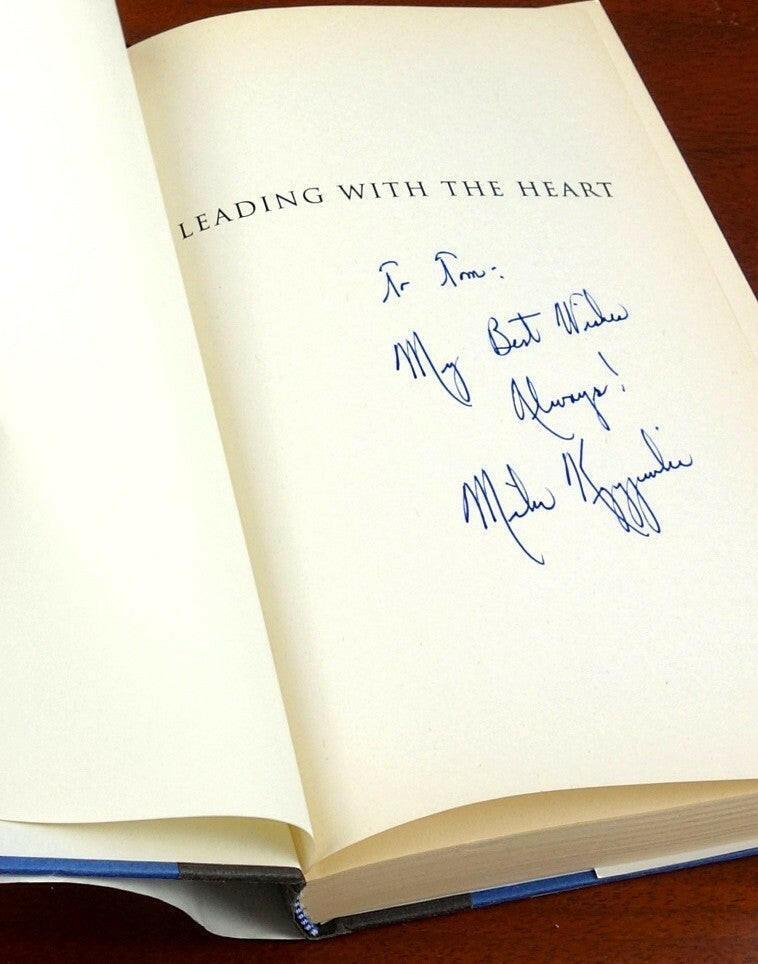 LEADING WITH THE HEART
To Tom:
My Best Wishes
Always!
Mike Krzyzewski